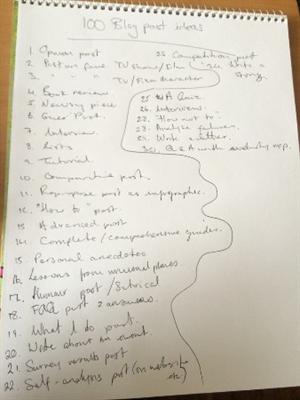 100 Blog post ideas
1. Opinion post
2. Post on fave TV show/film
3. " " " TV/Film character
4. Book review
5. Newsy piece
6. Guest Post.
7. Interview.
8. Lists
9. Tutorial
10. Comparative post.
11. Repurpose post as infographic.
12. "How to" post.
13. Advanced post
14. Complete/comprehensive guides.
15. Personal anecdotes
16. Lessons from unusual places
17. Humour post/satirical
18. FAQ post & answers.
19. What I do post.
20. Write about an event.
21. Survey results post
22. Self-analysis post (on website etc)
23. Competition post
24. Write a story.
25. A Quiz
26. Interviews.
27. "How not to"
28. Analyse failures.
29. Write a letter.
30. Q&A with